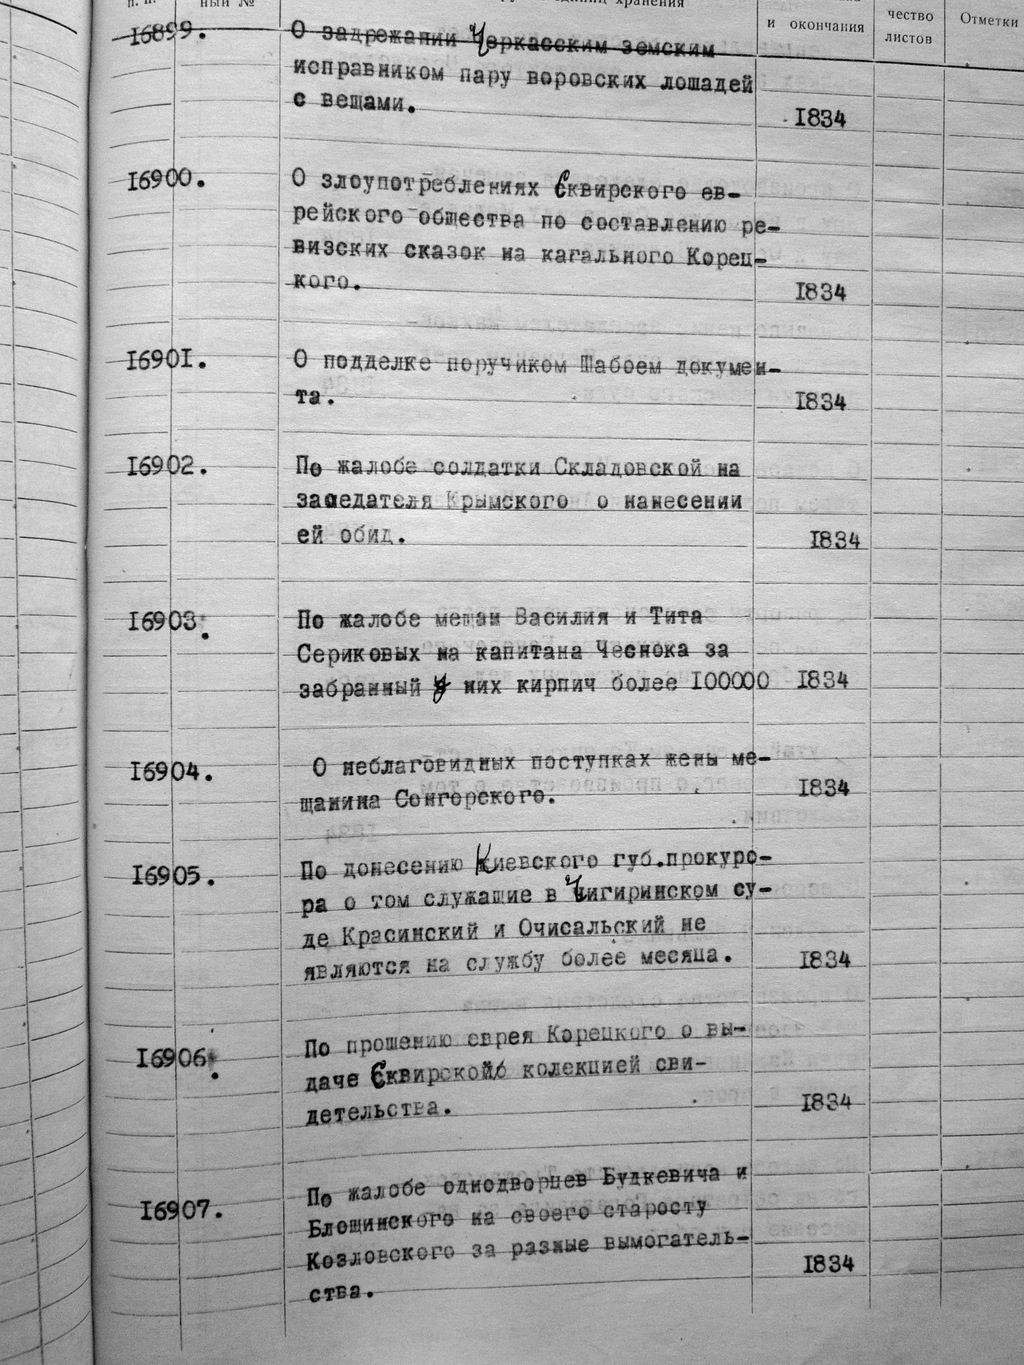 п. п.
ный №
единиц хранения
и окончания
чество
листов
Отметки
16899.
О задрежании Черкасским земским
исправником пару воровских лошадей
с вещами.
1834
16900.
О злоупотреблениях Сквирского ев-
рейского общества по составлению ре-
визских сказок на кагального Корец-
кого.
1834
16901.
О подделке поручиком Шабоем докумен-
та.
1834
16902.
По жалобе солдатки Складовской на
заседателя Крымского о нанесении
ей обид.
1834
16903.
По жалобе мещан Василия и Тита
Сериковых на капитана Чеснока за
забранный у них кирпич более 100000
1834
16904.
О неблаговидных поступках жены ме-
щанина Сонгорского.
1834
16905.
По донесению Киевского губ.прокуро-
ра о том служащие в Чигиринском су-
де Красинский и Очисальский не
являются на службу более месяца.
1834
16906.
По прошению еврея Корецкого о вы-
даче Сквирской колекцией сви-
детельства.
1834
16907.
По жалобе однодворцев Будкевича и
Блощинского на своего старосту
Козловского за разные вымогатель-
ства.
1834